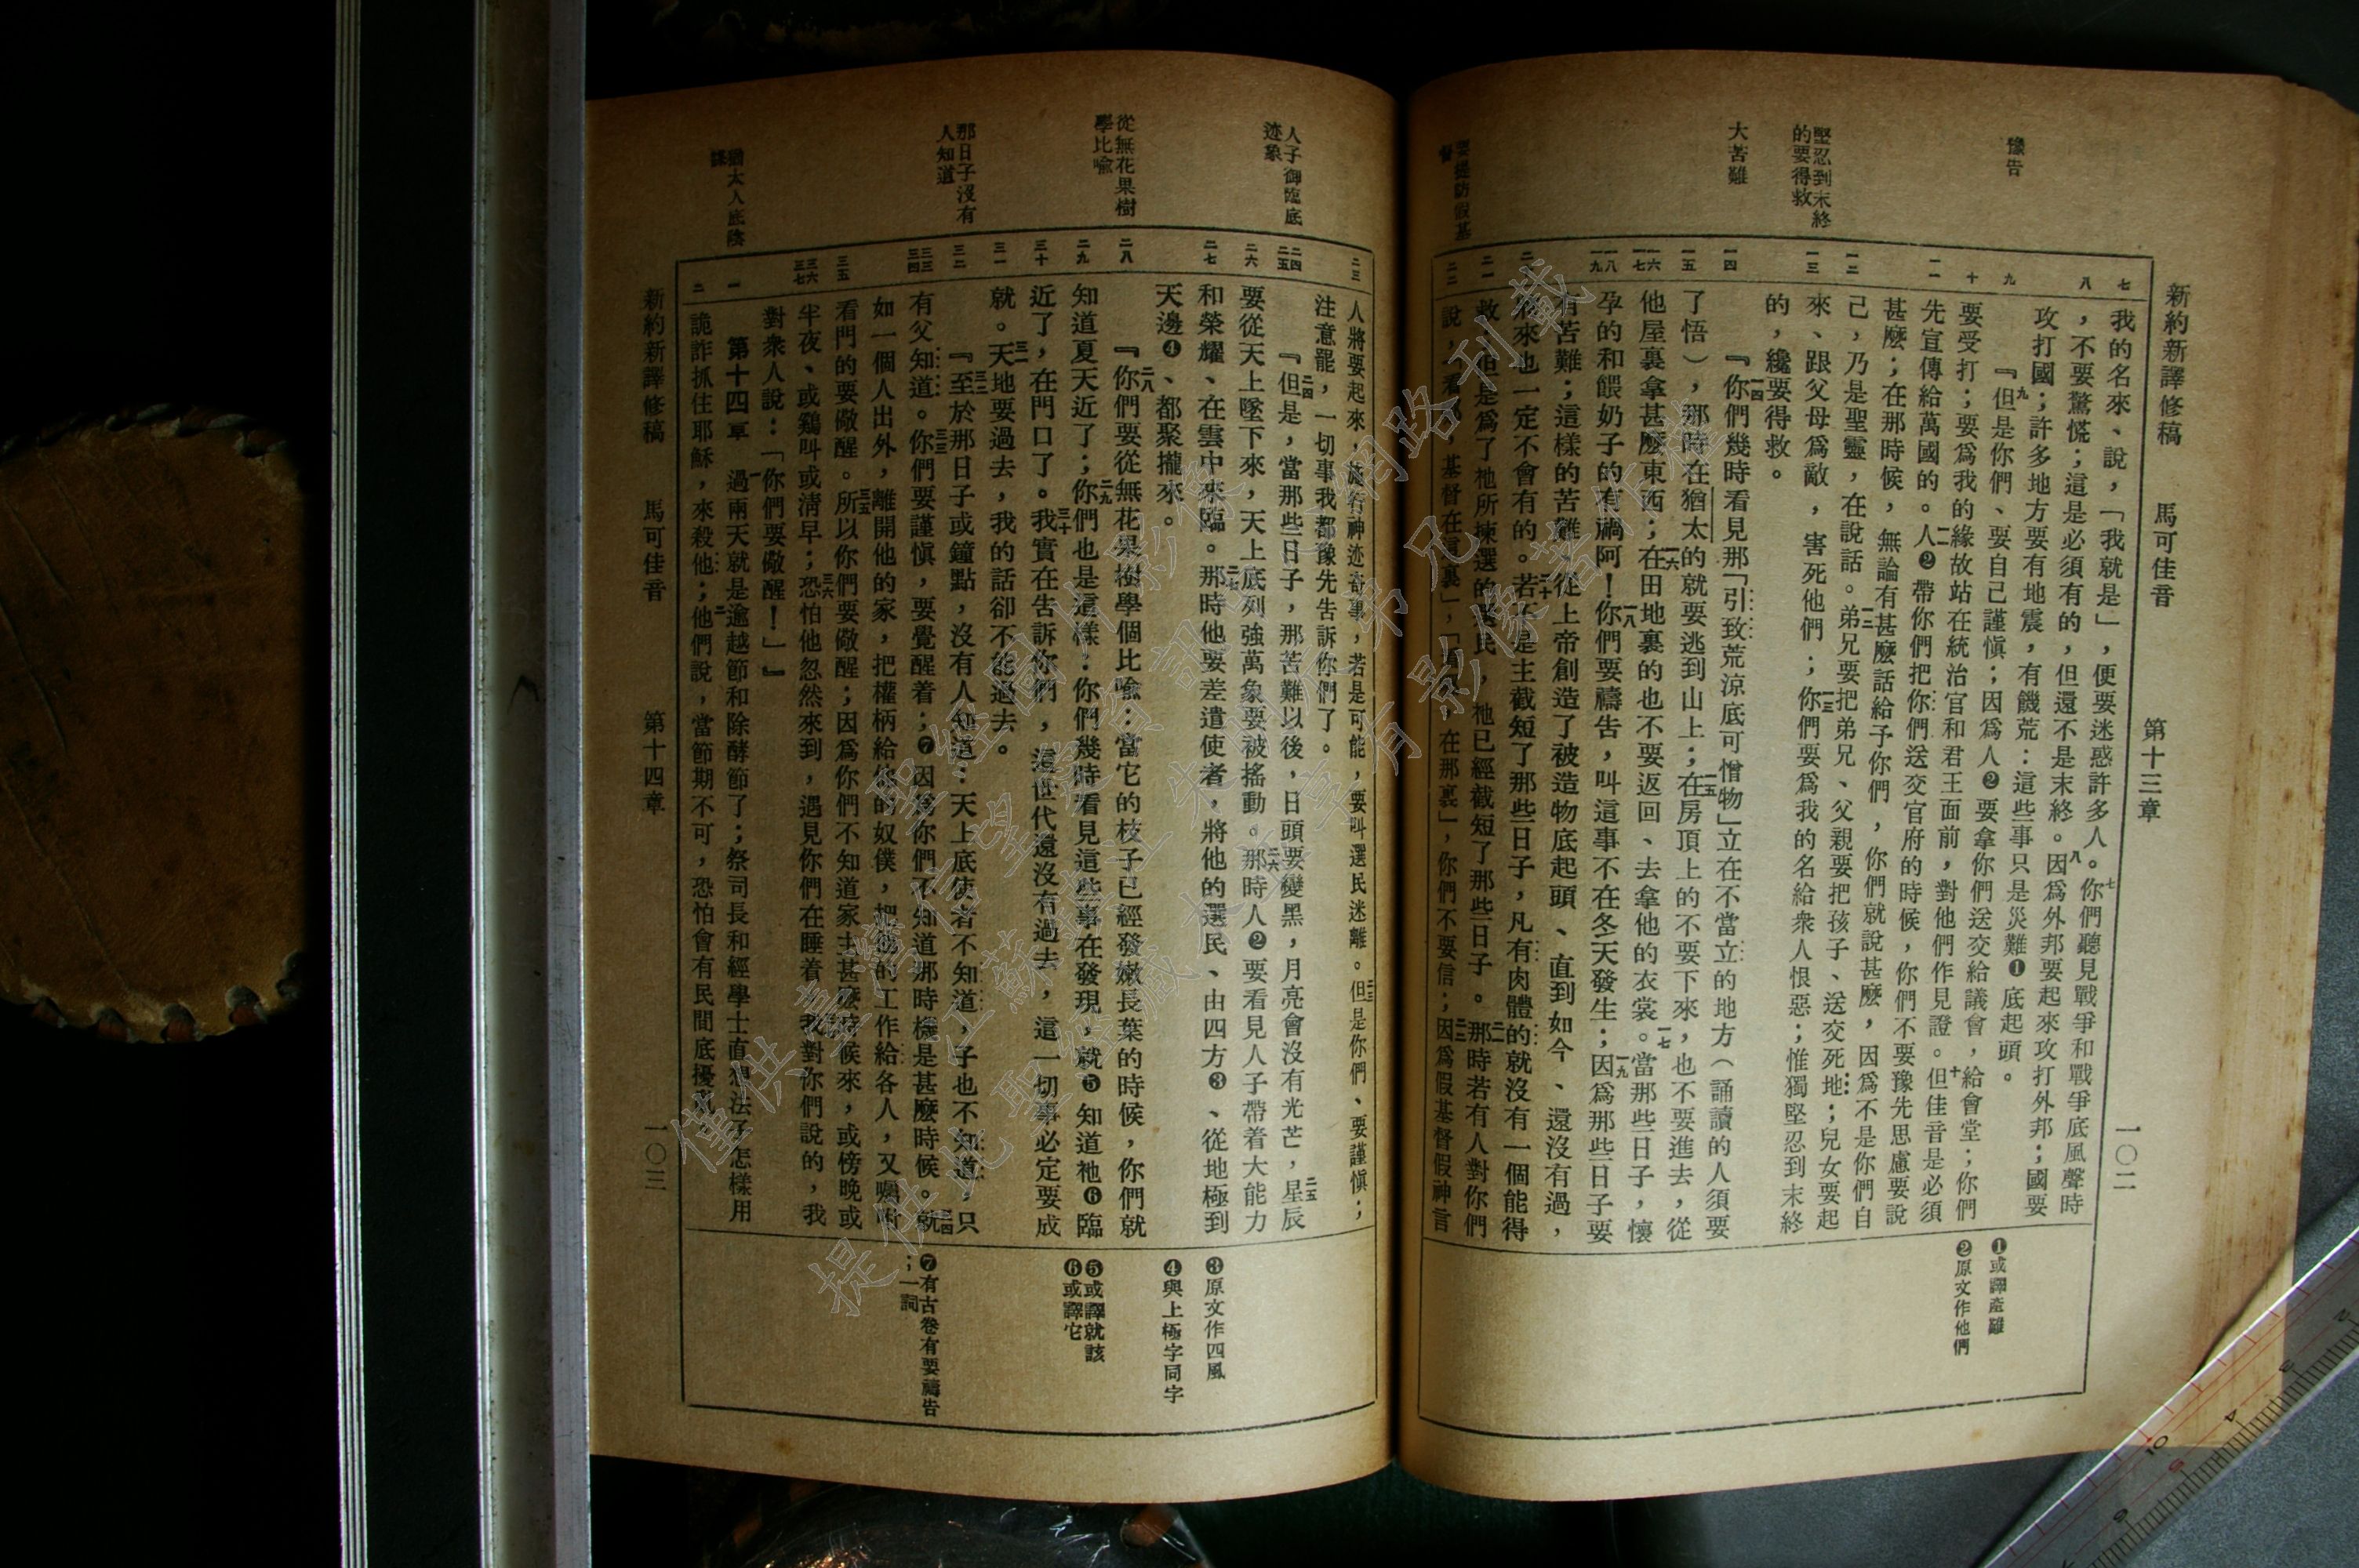 新約新譯修稿　馬可佳音　第十三章　一〇二
豫告
堅忍到末終的要得救
大苦難
要提防假基督
七
八
九
十
一一
一二
一三
一四
一五
一六
一七
一八
一九
二一
二二
我的名來、說，「我就是」，便要迷惑許多人。七你們聽見戰爭和戰爭底風聲時
，不要驚慌；這是必須有的，但還不是末終。八因爲外邦要起來攻打外邦；國要
攻打國；許多地方要有地震，有饑荒：這些事只是災難❶底起頭。
『九但是你們、要自己謹愼；因爲人❷要拿你們送交給議會，給會堂；你們
要受打；要爲我的緣故站在統治官和君王面前，對他們作見證。十但佳音是必須
先宣傳給萬國的。一一人❷帶你們把你們送交官府的時候，你們不要豫先思慮要說
甚麼；在那時候，無論有甚麼話給予你們，你們就說甚麼，因爲不是你們自
己，乃是聖靈，在說話。一二弟兄要把弟兄、父親要把孩子、送交死地；兒女要起
來、跟父母爲敵，害死他們；一三你們要爲我的名給衆人恨惡；惟獨堅忍到末終
的，纔要得救。
『一四你們幾時看見那「引致荒涼底可憎物」立在不當立的地方（誦讀的人須要
了悟），那時在猶太的就要逃到山上；一五在房頂上的不要下來，也不要進去，從
他屋裏拿甚麼東西；一六在田地裏的也不要返回、去拿他的衣裳。一七當那些日子，懷
孕的和餵奶子的有禍阿！一八你們要禱告，叫這事不在冬天發生；一九因爲那些日子要
有苦難；這樣的苦難、從上帝創造了被造物底起頭、直到如今、還沒有過，
將來也一定不會有的。二十若不是主截短了那些日子，凡有肉體的就沒有一個能得
救；但是爲了祂所揀選的選民，祂已經截短了那些日子。二一那時若有人對你們
說，「看哪，基督在這裏」，「看，在那裏」，你們不要信；二二因爲假基督假神言
❶或譯產難
❷原文作他們
人子御臨底迹象
從無花果樹學比喻
那日子沒有人知道
猶太人底陰謀
二三
二四
二五
二六
二七
二八
二九
三十
三一
三二
三三
三四
三五
三六
三七
一
二
人將要起來，施行神迹奇事，若是可能，要叫選民迷離。二三但是你們、要謹愼；
注意罷，一切事我都豫先告訴你們了。
『二四但是，當那些日子，那苦難以後，日頭要變黑，月亮會沒有光芒，二五星辰
要從天上墜下來，天上底列強萬象要被搖動。二六那時人❷要看見人子帶着大能力
和榮耀、在雲中來臨。二七那時他要差遣使者，將他的選民、由四方❸、從地極到
天邊❹、都聚攏來。
『二八你們要從無花果樹學個比喻：當它的枝子已經發嫩長葉的時候，你們就
知道夏天近了；二九你們也是這樣：你們幾時看見這些事在發現，就❺知道祂❻臨
近了，在門口了。三十我實在告訴你們，這世代還沒有過去，這一切事必定要成
就。三一天地要過去，我的話卻不能過去。
『三二至於那日子或鐘點，沒有人知道：天上底使者不知道，子也不知道，只
有父知道。三三你們要謹愼，要覺醒着；❼因爲你們不知道那時機是甚麼時候。三四就
如一個人出外，離開他的家，把權柄給他的奴僕，把他的工作給各人，又囑咐
看門的要儆醒。三五所以你們要儆醒；因爲你們不知道家主甚麼時候來，或傍晚或
半夜、或鷄叫或清早；三六恐怕他忽然來到，遇見你們在睡着。三七我對你們說的，我
對衆人說：「你們要儆醒！」』
第十四章　一過兩天就是逾越節和除酵節了；祭司長和經學士直想法子怎樣用
詭詐抓住耶穌，來殺他；二他們說，當節期不可，恐怕會有民間底擾亂。
❸原文作四風
❹與上極字同字
❺或譯就該
❻或譯它
❼有古卷有要禱告；一詞
新約新譯修稿　馬可佳音　第十四章　一〇三